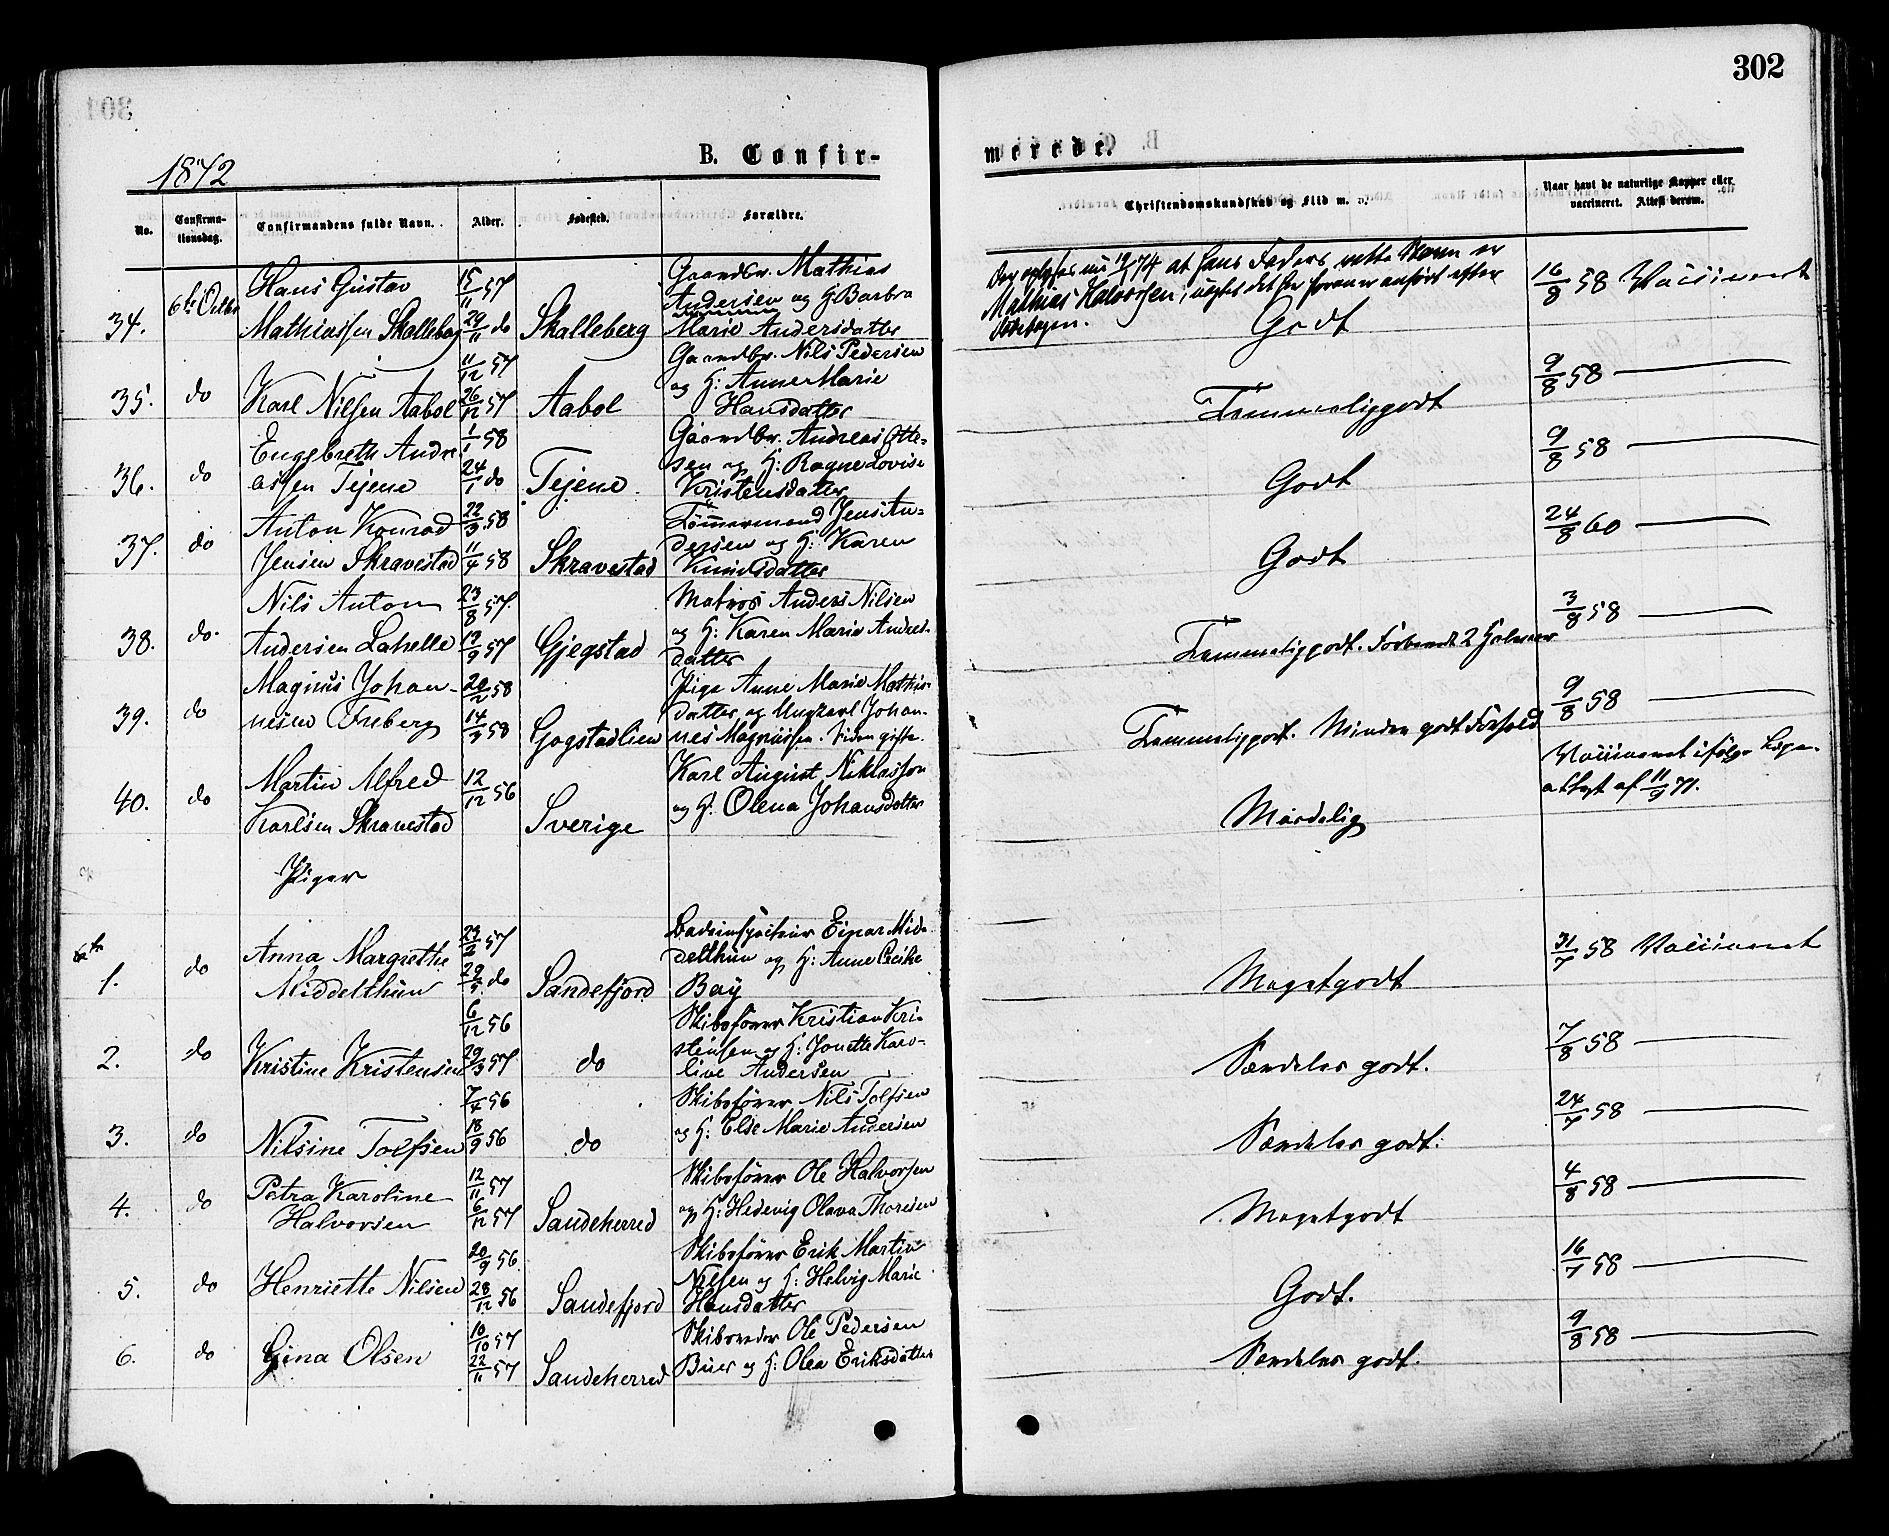 302
1872
B. Confir-
merede.
No.
Confirma-
tionsdag.
Confirmandens fulde Navn.
Alder.
Fødested.
Forældre.
Christendomskundskab og Flid m. v.
Naar havt de naturlige Kopper eller
vaccineret. Attest derom.
34.
6te Octbr
Hans Gustav
Mathiassen Skalleberg
15/11 57
29/11 do
Skalleberg
Gaardbr. Mathias
Andersen og H. Barbra
Marie Andersdatter
19/ 74 at hans Faders rette Navn er
Mathias Halvorsen,
Godt
16/8 58 Vaccineret
35.
do
Karl Nilsen Aabol
11/12 57
26/12 57
Aabol
Gaardbr. Nils Pedersen
og H: Anne Marie
Hansdatter
Temmeliggodt
9/8 58
36.
do
Engebreth Andre
assen Tejene
1/1 58
24/1 do
Tejene
Gaardbr. Andreas Otte-
sen og H: Ragne Lovise
Kristensdatter
Godt
9/8 58
37.
do
Anton Konrad
Jensen Skravestad
22/3 58
11/4 58
Skravestad
Tømmermand Jens An-
dersen og H: Karen
Knudsdatter
Godt
24/8 60
38.
do.
Nils Anton
Andersen Lahelle
23/8 57.
12/9 57
Gjegstad
Matros Anders Nilsen
og H: Karen Marie Andres-
datter
Temmeliggodt. 2
3/8 58
39.
do
Magnus Johan-
nesen Freberg
20/2 58
14/3 58
Gogstadlien
Pige Anne Marie Mathis-
datter og Ungkarl Johan-
nes Magnussen. Siden gifte.
Temmeliggodt. Mindre godt Forhold
9/8 58
40.
do
Martin Alfred
Karlsen Skravestad
12/12 56
Sverige
Karl August Niklasson
og H: Olena Johansdatter
Maadelig
Vaccineret ifølge Læge-
attest af 11/9 71.
Piger
1.
do
Anna Margrethe
Middelthun
57
do
Sandefjord
Badeinspecteur Einar Mid-
delthun og H: Anne Cecilie
Bay
Megetgodt
31/7 58 Vaccineret
2.
do
Kristine Kristensen
6/12 56
29/3 57
do
Skibsfører Kristian Kri-
stensen og H: Jonette Karo-
line Andersen
Særdeles godt.
7/8 58
3.
do
Nilsine Tolfsen
7/4 56
18/9 56
do
Skibsfører Nils Tolfsen
og H: Else Marie Andersen
Særdeles godt.
24/7 58
4.
do
Petra Karoline
Halvorsen
12/11 57
6/12 57
Sandeherred
Skibsfører Ole Halvorsen
og H: Hedevig Olava Thoresen
Megetgodt
4/8 58
5.
do
Henriette Nilsen
20/9 56.
28/12 56
Sandefjord
Skibsfører Erik Martin
Nilsen og H: Helvig Marie
Hansdatter
Godt.
16/7 58
6.
do
Gina Olsen
10/10 57
22/11 57
Sandeherred
Skibsreder Ole Pedersen
Buer og H: Olea Eriksdatter
Særdeles godt.
9/8 58